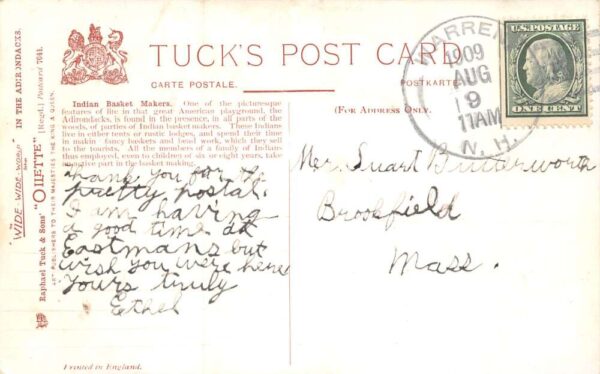 TUCK'S POST CARD
CARTE POSTALE.
POSTKARTE.
(FOR ADDRESS ONLY.)
Indian Basket Makers. One of the picturesque
features of life in that great American playground, the
Adirondacks, is found in the presence, in all parts of the
woods, of parties of Indian basket makers. These Indians
live in either tents or rustic lodges, and spend their time
in making fancy baskets and bead work, which they sell
to the tourists. All the members of a family of Indians
thus employed, even to children of six or eight years, take
active part in the basket making.
thank you for the
pretty postal.
I am having
a good time at
Eastmans but
wish you were here
Yours truly
Ethel
WARREN
1909
AUG
9
11AM
N. H.
U.S. POSTAGE
ONE CENT
Mer. Stuart Butterworth
Brookfield
Mass.
"WIDE-WIDE-WORLD" IN THE ADIRONDACKS.
Raphael Tuck & Sons' "OILETTE" [Regd.] Postcard 7641.
ART PUBLISHERS TO THEIR MAJESTIES THE KING & QUEEN.
Printed in England.